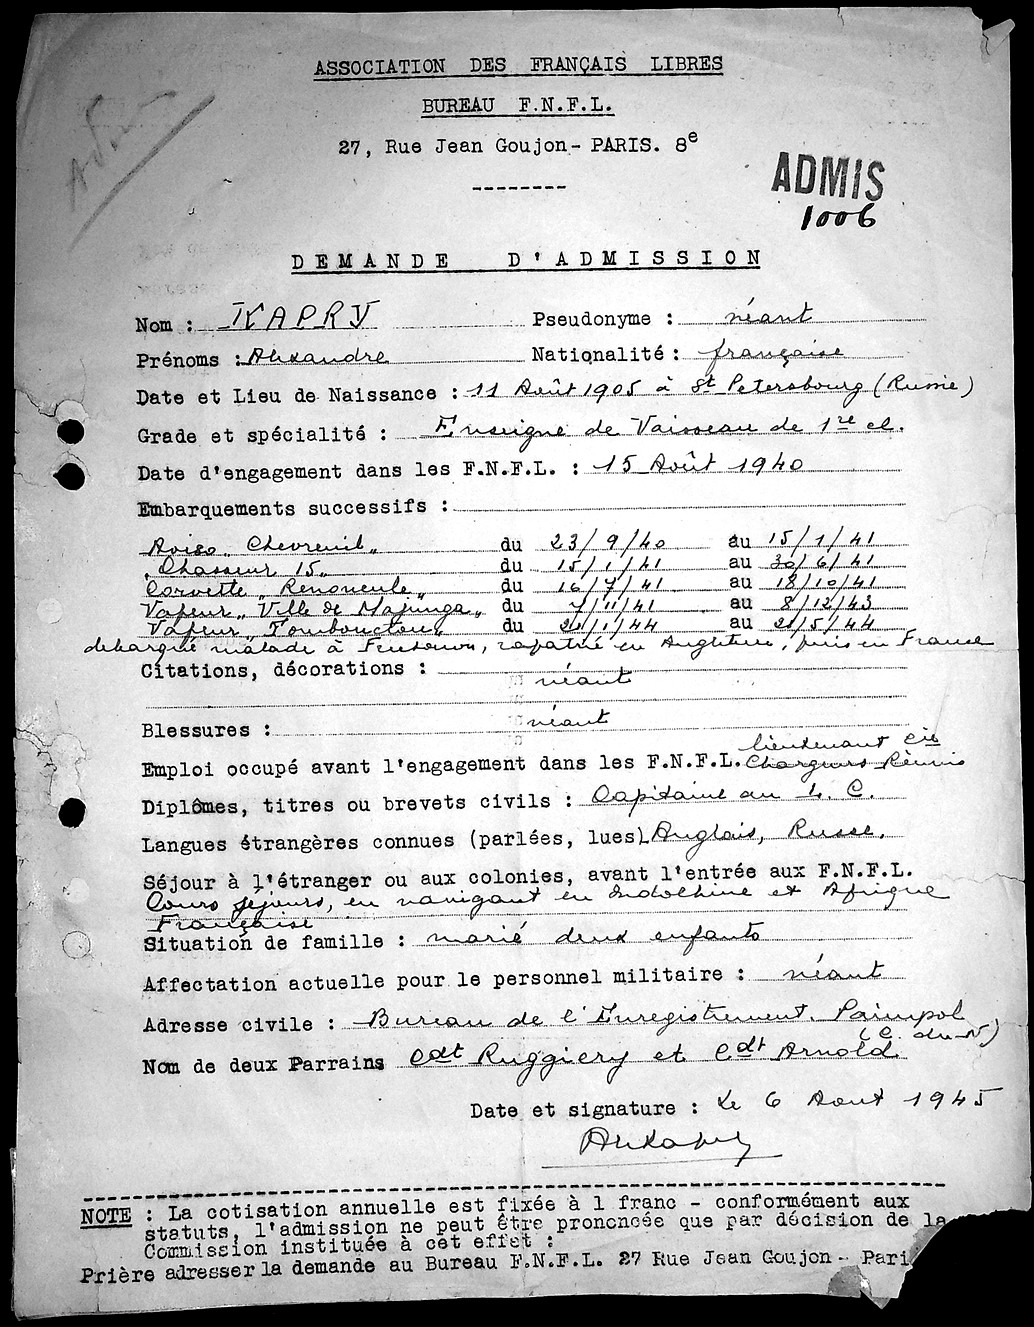 ASSOCIATION DES FRANÇAIS LIBRES
BUREAU F.N.F.L.
27, Rue Jean Goujon - PARIS. 8e
--------
ADMIS
1006
DEMANDE D'ADMISSION
Nom : KAPRY Pseudonyme : néant
Prénoms : Alexandre Nationalité : française
Date et Lieu de Naissance : 11 Août 1905 à St Petersbourg (Russie)
Grade et spécialité : Enseigne de Vaisseau de 1re cl.
Date d'engagement dans les F.N.F.L. : 15 Août 1940
Embarquements successifs :
Aviso "Chevreuil" du 23/9/40 au 15/1/41
"Chasseur 15" du 15/1/41 au 30/6/41
Corvette "Renoncule" du 16/7/41 au 18/10/41
Vapeur "Ville de Majunga" du 7/11/41 au 8/12/43
Vapeur "Tombouctou" du 21/1/44 au 21/5/44
debarqué malade à Freetown, rapatrié en Angleterre, puis en France
Citations, décorations :
néant
Blessures : néant
lieutenant Cie
Emploi occupé avant l'engagement dans les F.N.F.L. Chargeurs Réunis
Diplômes, titres ou brevets civils : Capitaine au L. C.
Langues étrangères connues (parlées, lues) Anglais, Russe.
Séjour à l'étranger ou aux colonies, avant l'entrée aux F.N.F.L.
Cours séjours, en navigant en Indochine et Afrique
Française
Situation de famille : marié deux enfants
Affectation actuelle pour le personnel militaire : néant
Adresse civile : Bureau de l'Enregistrement. Paimpol
(C. du N)
Nom de deux Parrains Cdt Ruggiery et Cdt Arnold
Date et signature : Le 6 Aout 1945
NOTE : La cotisation annuelle est fixée à 1 franc - conformément aux
statuts, l'admission ne peut être prononcée que par décision de la
Commission instituée à cet effet :
Prière adresser la demande au Bureau F.N.F.L. 27 Rue Jean Goujon - Pari